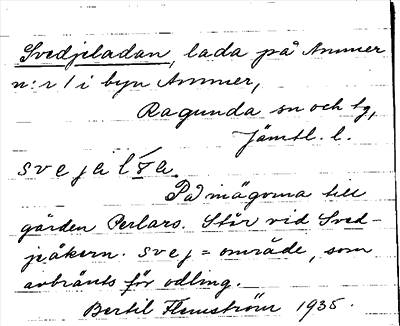 Svedjeladan, lada på Ammer
n:r 1 i byn Ammer,
Ragunda sn och tg,
Jämtl. l.
På mägorna till
gården Perlars. Står vid Sved-
jeåkern. svej = område, som
avbränts för odling.
Bertil Flemström 1935.